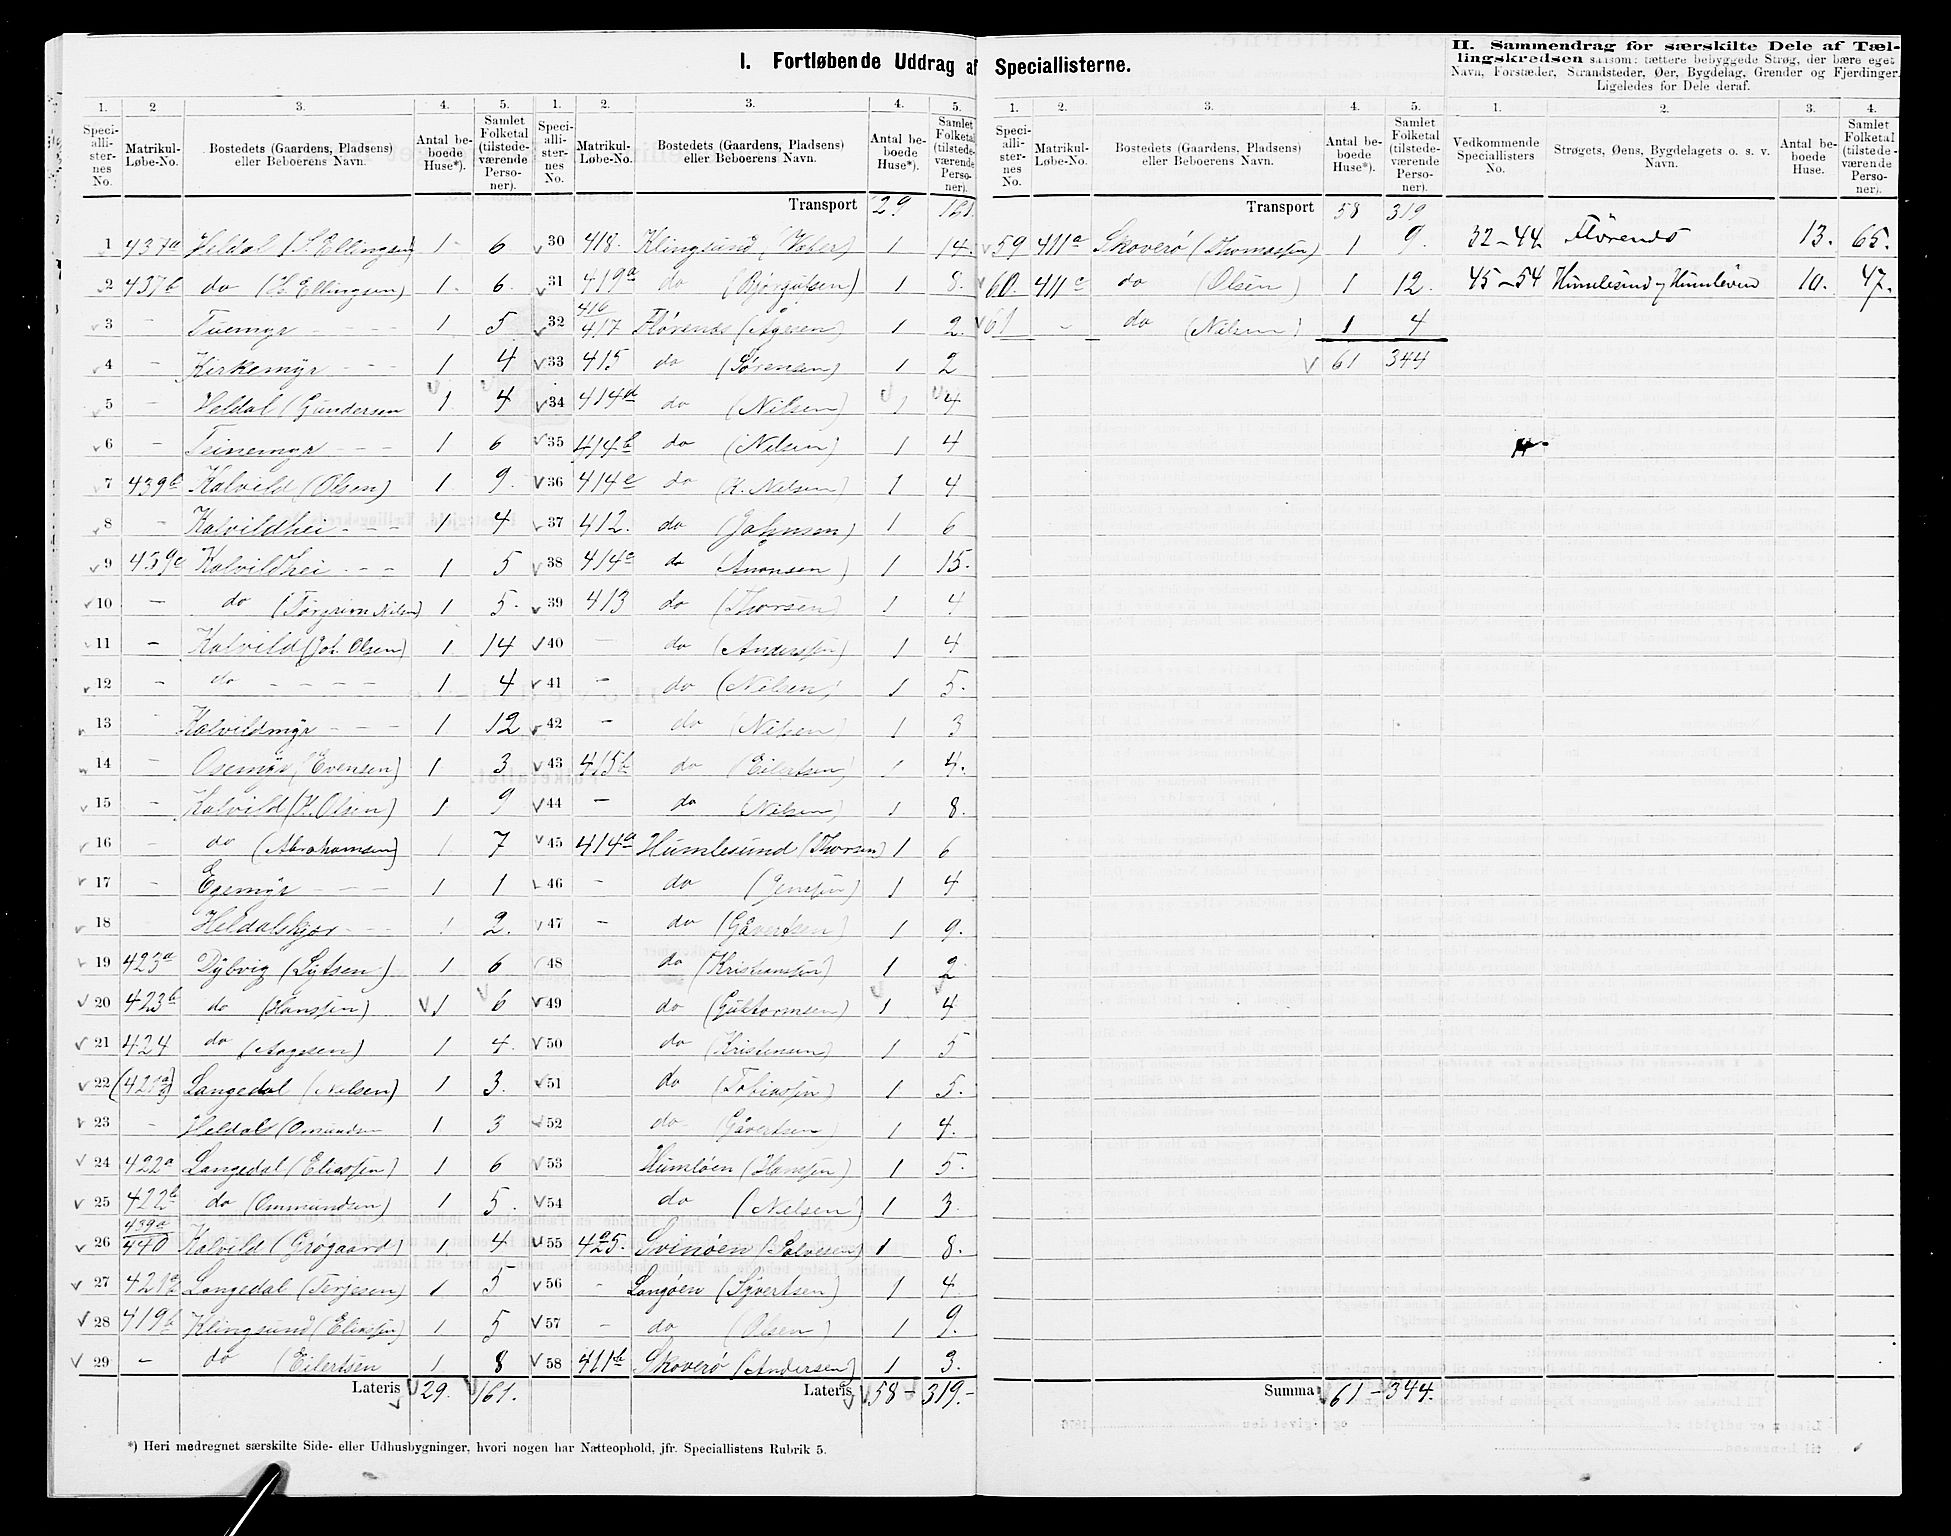 I. Fortløbende Uddrag af Speciallisterne.
II. Sammendrag for særskilte Dele af Tællingskredsen saasom: tættere bebyggede Strøg, der bære eget
Navn, Forstæder, Strandsteder, Øer, Bygdelag, Grender og Fjerdinger.
Ligeledes for Dele deraf.
1. 2 3. 4. 5.
Speciallisternes No. Matrikul-Løbe-No. Bostedets (Gaardens, Pladsens) eller Beboerens Navn. Antal beboede Huse*). Samlet Folketal (tilstedeværende Personer).
1 437a Heldal (S. Ellingsen) 1 6
2 437b do (H. Ellingsen) 1 6.
3 Tuemyr 1 5
4 - Kirkemyr 1 4
5 - Heldal (Gundersen 1 4
6 - Teinemyr 1 6
7 439b Kalvild (Olsen) 1 9.
8 - Kalvildhei 1 4
9 439c Kalvildhei 1 5
10 - do (Torgrim Nilsen) 1 5.
11 - Kalvild (Joh. Olsen) 1 14
12 - do 1 4
13 - Kalvildmyr 1 12
14 - Osemyr (Evensen) 1 3
15 - Kalvild (K. Olsen) 1 9
16 - do (Abrahamsen) 1 7
17 - Egemyr 1 1
18 Heldalskjær 1 2.
19 423a Dybvig (Syltsen) 1 6
20 423b do (Hanssen) 1 6
21 424 do (Aagesen) 1 4.
22 Langedal (Nilsen) 1 3.
23 - Heldal (Omundsen 1 3
24 422a Langedal (Eliassen) 1 6
25 422b do (Ommundsen) 1 5.
26 439a 440 Kalvild (Grøgaard) 1 4
27 Langedal (Terjesen) 1 5
28 419b Klingsund (Eliassen) 1 5
29 - do (Eilertsen 1 8
Lateris 29. 161.
1. 2. 3. 4. 5.
Speciallisternes No. Matrikul-Løbe-No. Bostedets (Gaardens, Pladsens) eller Beboerens Navn. Antal beboede Huse*). Samlet Folketal (tilstedeværende Personer).
Transport 29 161
30 418. Klingsund 1 14.
31 419a do 1 8.
32 416 417 Florenes (Ågesen) 1 2.
33 415 do (Sørensen) 1 2
34 414d do (Nilsen) 1 4
35 414b do (Nilsen) 1 4
36 414c do (K. Nilsen) 1 4
37 412. do (Johnsen) 1 6
38 414e do (Ånonsen) 1 15.
39 413 do (Thorsen) 1 4
40 - do (Anderssen) 1 4
41 - do (Nilsen) 1 5.
42 - do (Nilsen) 1 3
43 415b do (Eilertsen) 1 4.
44 - do (Nilsen) 1 8.
45 414a Humlesund (Thorsen) 1 6
46 - do (Jenssen) 1 4
47 - do (Gåvertsen) 1 9.
48 do (Kristianssen) 1 2
49 do (Guttormsen) 1 4
50 do (Kristensen) 1 5
51 do (Tobiassen) 1 5.
52 do (Gåvertsen) 1 4.
53 Humløen (Hanssen) 1 5.
54 do (Nilsen) 1 3.
55 425. Svinøen (Salvesen) 1 8.
56 - Langøen (Syvertsen) 1 4.
57 - do (Olsen) 1 9.
58 411b Skoverø (Andersen) 1 3.
Lateris 58 - 319.-
1. 2. 3. 4. 5.
Speciallisternes No. Matrikul-Løbe-No. Bostedets (Gaardens, Pladsens) eller Beboerens Navn. Antal beboede Huse*). Samlet Folketal (tilstedeværende Personer).
Transport 58 319
59 411a Skoverø (Thomassen) 1 9.
60. 411c do (Olsen) 1 12.
61 - do (Nilsen) 1 4
61 344
Summa 61 - 344.
1. 2. 3. 4.
Vedkommende Speciallisters No. Strøgets, Øens, Bygdelagets o. s. v. Navn. Antal beboede Huse. Samlet Folketal (tilstedeværende Personer).
32-44. Florenes 13. 65.
45-54 Humlesund og Humleøen 10. 47.
*) Heri medregnet særskilte Side- eller Udhusbygninger, hvori nogen har Natteophold, jfr. Speciallistens Rubrik 5.